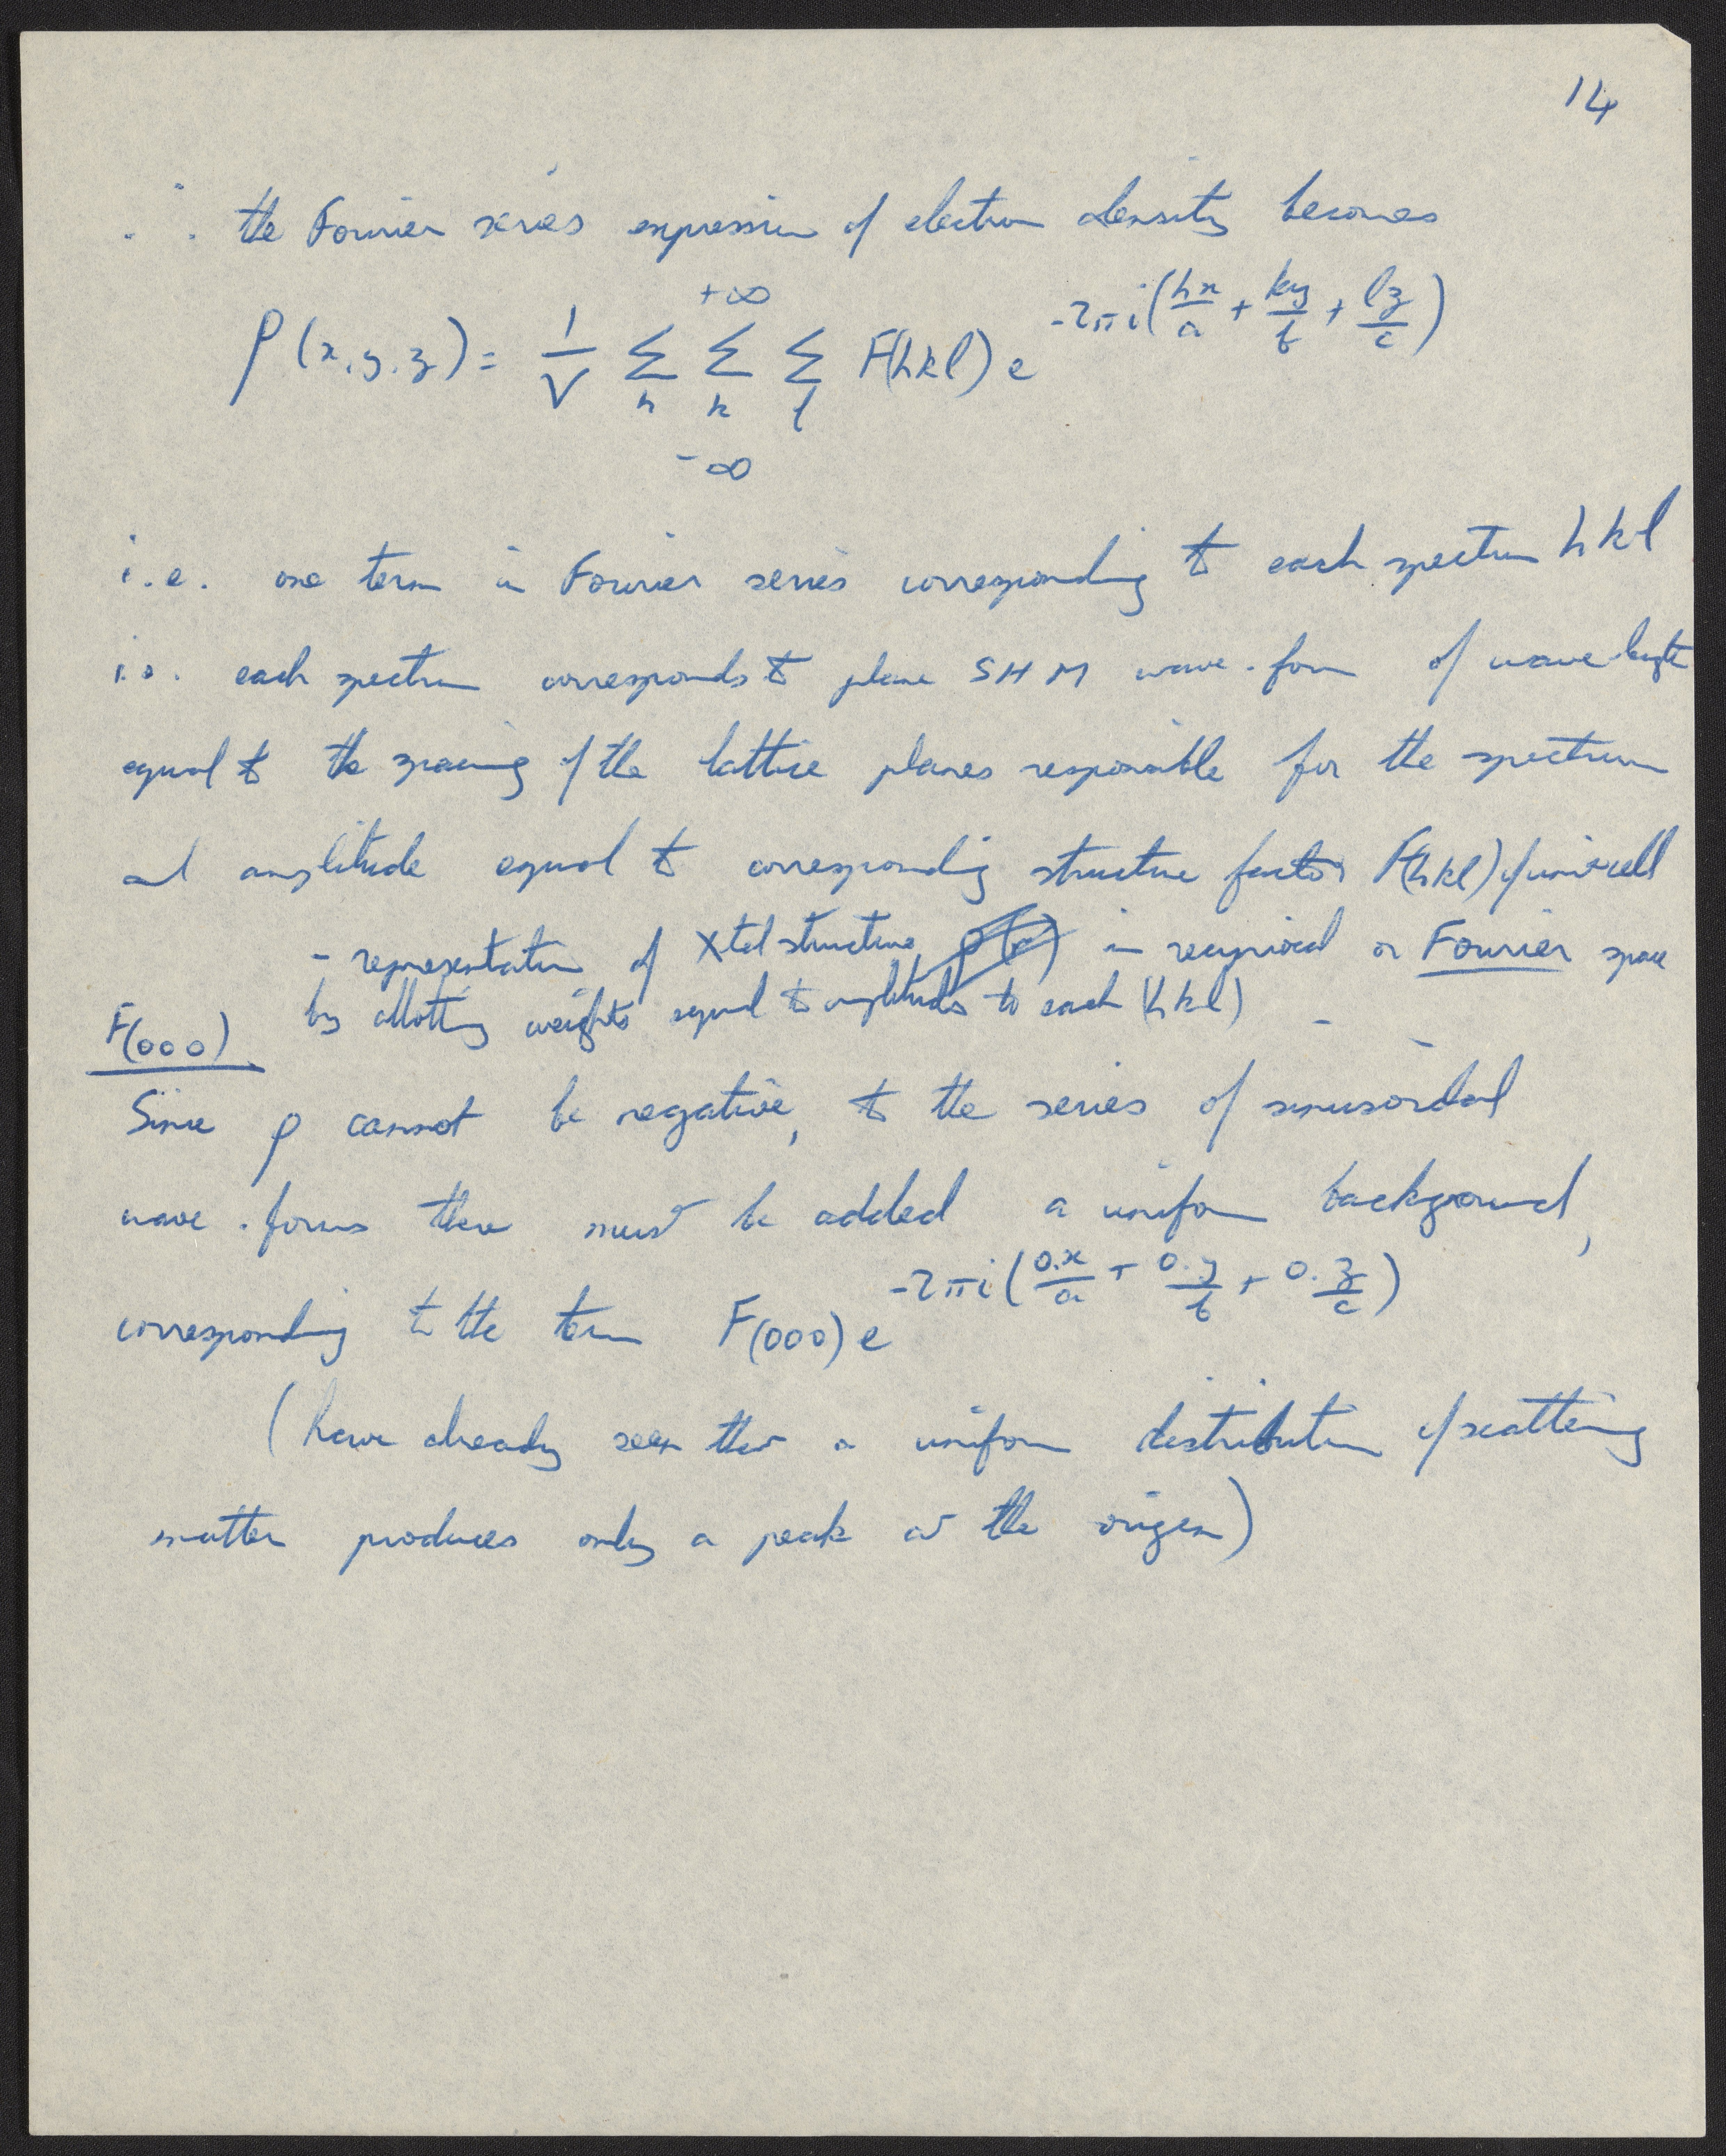 14
∴ the Fourier series expression of electron density becomes
ρ(x.y.z) = 1/V +∞ Σh Σk Σl -∞ F(hkl) e -2πi(hx/a + ky/b + lz/c)
i.e. one term in Fourier series corresponding to each spectrum hkl
i.e. each spectrum corresponds to plane SHM wave-form of wave length
equal to the spacing of the lattice planes responsible for the spectrum
and amplitude equal to corresponding structure factor F(hkl) of unit cell
- representation of Xtal structure, in reciprocal or Fourier space
by allotting weights equal to amplitudes to each (hkl) -
F(000).
Since ρ cannot be negative, to the series of sinusoidal
wave-forms there must be added a uniform background,
corresponding to the term F(000) e -2πi(0.x/a + 0.y/b + 0.z/c)
(have already seen that a uniform distribution of scattering
matter produces only a peak at the origin)